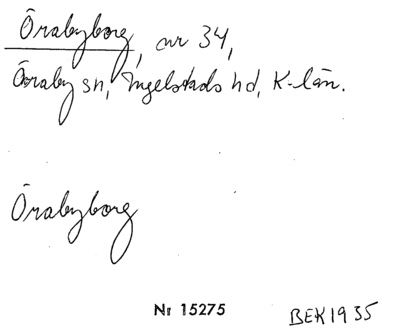 Örabyborg, nr 34,
Öraby sn, Ingelstads hd, K-län.
Örabyborg
Nr 15275
BEK1935